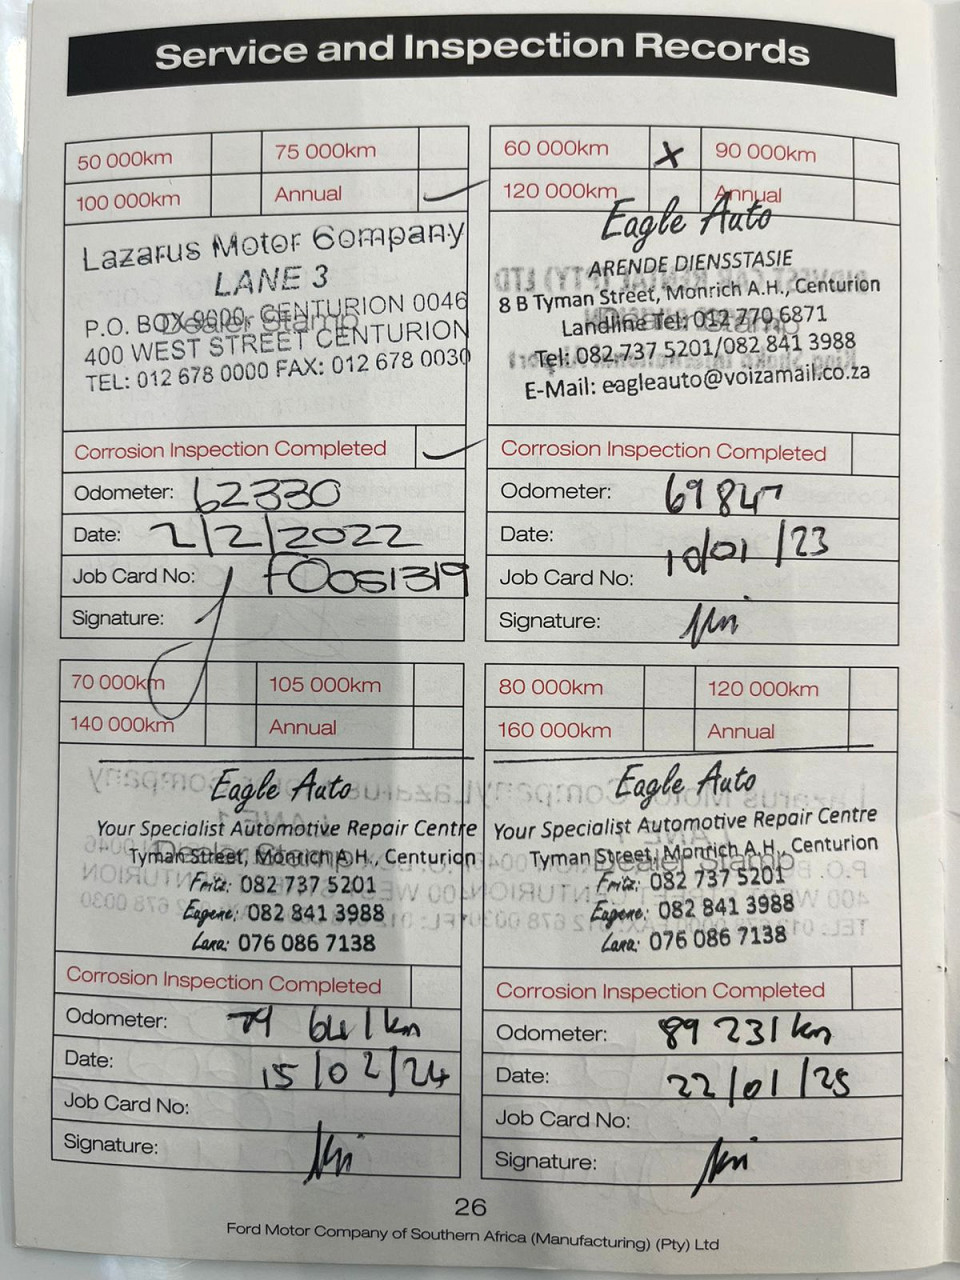 Service and Inspection Records
50 000km 75 000km
100 000km Annual ✓
Lazarus Motor Company
LANE 3
P.O. BOX 9600, CENTURION 0046
Dealer Stamp
400 WEST STREET CENTURION
TEL: 012 678 0000 FAX: 012 678 0030
Corrosion Inspection Completed ✓
Odometer: 62330
Date: 2/2/2022
Job Card No: f0051319
Signature:
60 000km X 90 000km
120 000km Annual
Eagle Auto
ARENDE DIENSSTASIE
8 B Tyman Street, Monrich A.H., Centurion
Landline Tel: 012 770 6871
Tel: 082 737 5201/082 841 3988
E-Mail: eagleauto@voizamail.co.za
Corrosion Inspection Completed
Odometer: 69847
Date: 10/01/23
Job Card No:
Signature:
70 000km 105 000km
140 000km Annual
Eagle Auto
Your Specialist Automotive Repair Centre
Tyman Street, Monrich A.H., Centurion
Dealer Stamp
Fritz: 082 737 5201
Eugene: 082 841 3988
Lana: 076 086 7138
Corrosion Inspection Completed
Odometer: 79 641km
Date: 15/02/24
Job Card No:
Signature:
80 000km 120 000km
160 000km Annual
Eagle Auto
Your Specialist Automotive Repair Centre
Tyman Street, Monrich A.H., Centurion
Dealer Stamp
Fritz: 082 737 5201
Eugene: 082 841 3988
Lana: 076 086 7138
Corrosion Inspection Completed
Odometer: 89 231km
Date: 22/01/25
Job Card No:
Signature:
26
Ford Motor Company of Southern Africa (Manufacturing) (Pty) Ltd